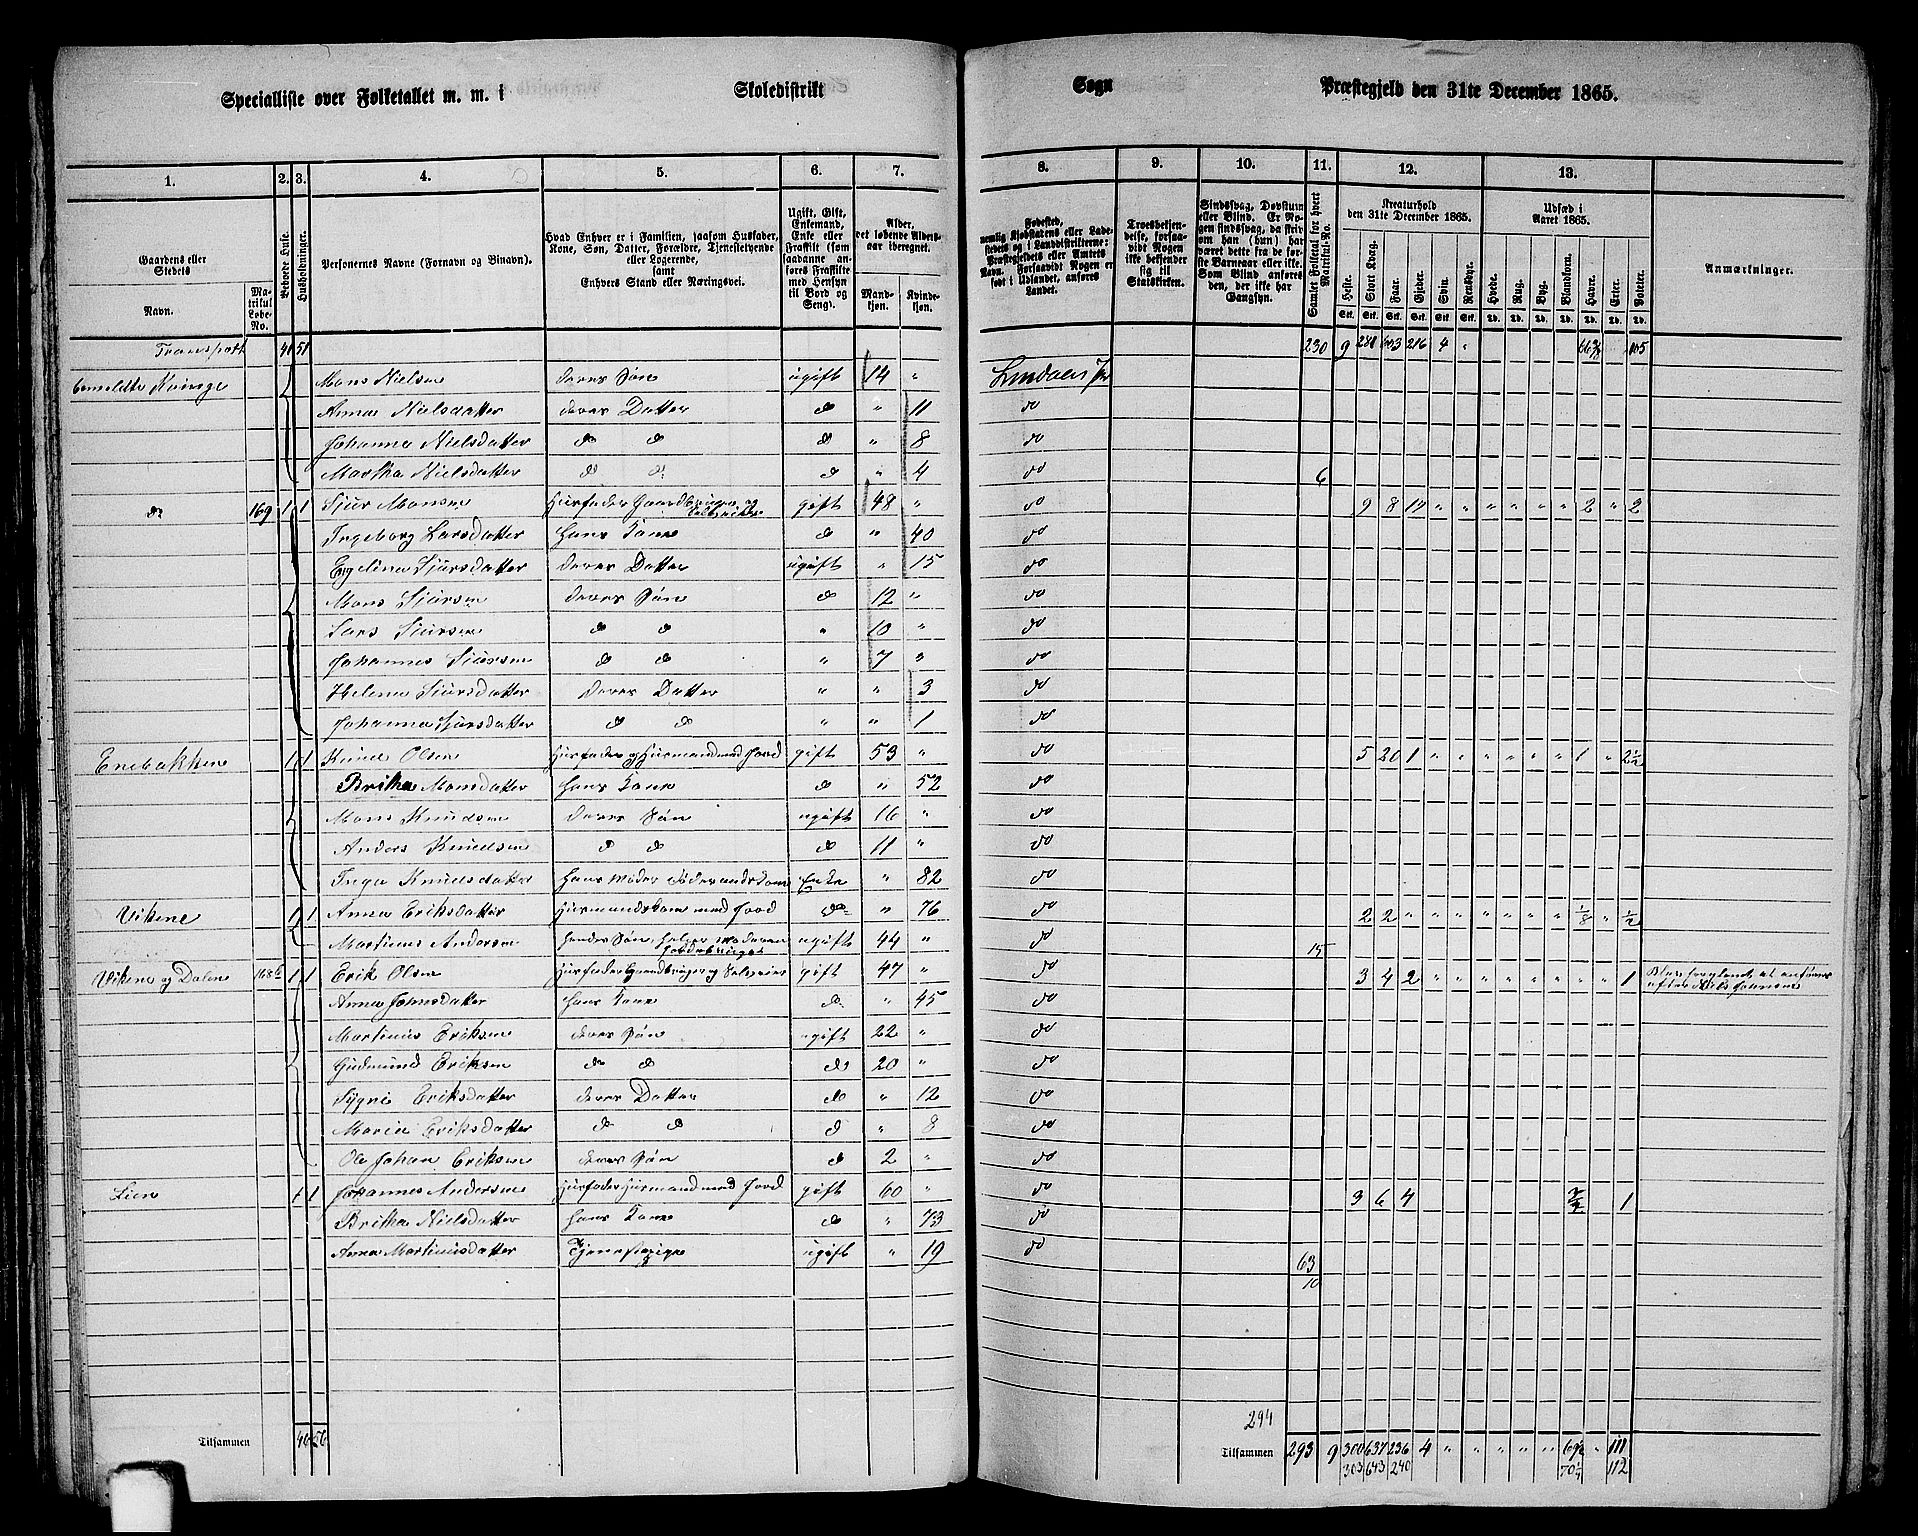 Specialliste over Folketallet m. m. i Skoledistrikt Sogn Præstegjeld den 31te December 1865.
1. 2. 3. 4. 5. 6. 7. 8. 9. 10. 11. 12. 13.
Gaardens eller Stedets
Navn.
Matrikul Løbe-No.
Beboede Huse.
Husholdninger.
Personernes Navne (Fornavn og Binavn).
Hvad Enhver er i Familien, saasom Husfader, Kone, Søn, Datter, Forældre, Tjenestetyende eller Logerende, samt Enhvers Stand eller Næringsvei.
Ugift, Gift, Enkemand, Enke eller Fraskilt (som saadanne anføres Fraskilte med Hensyn til Bord og Seng).
Alder, det løbende Aldersaar iberegnet.
Mandkjøn.
Kvindekjøn.
Fødested, nemlig Kjøbstadens eller Ladestedets og i Landdistrikterne: Præstegjeldets eller Amtets Navn. Forsaavidt Nogen er født i Udlandet, anføres Landet.
Troesbekjendelse, forsaavidt Nogen ikke bekjender sig til Statskirken.
Sindssvag, Døvstum eller Blind. Er Nogen sindssvag, da skriv om han (hun) har været dette fra de første Barneaar eller ikke. Som Blind anføres den, der ikke har Gangsyn.
Samlet Folketal for hvert Matrikul-No.
Kreaturhold den 31te December 1865.
Heste. Stort Kvæg. Faar. Gjeder. Svin. Rensdyr.
Stk. Stk. Stk. Stk. Stk. Stk.
Udsæd i Aaret 1865.
Hvede. Rug. Byg. Blandkorn. Havre. Erter. Poteter.
Td. Td. Td. Td. Td. Td. Td.
Anmærkninger.
Transport 51 230 9 603 216 4 "
Mons Nielsen deres Søn ugift 14 "
Anna Nielsdatter deres Datter do " 11 do
Johanna Nielsdatter do do do " 8 do
Martha Nielsdatter do do do " 4 do 6
do 169 1 1 Sjur Monsen Husfader Gaardbruger og gift 48 " do 9 8 17 " " " " " " 2 " 2
Ingeborg Larsdatter Hans Kone do " 40 do
Engelina Sjursdatter deres Datter ugift " 15 do
Mons Sjursen deres Søn do 12 " do
Lars Sjursen do do " 10 " do
Johannes Sjursen do do " 7 " do
Helena Sjursdatter deres Datter " " 3 do
Johanna Sjursdatter do do " " 1 do
Enebakken 1 1 Knud Olsen Husfader og Husmand med Jord gift 53 " do 5 20 1 " " " " " " 1 " 2½
Britha Monsdatter Hans Kone do " 52 do
Mons Knudsen deres Søn ugift 16 " do
Anders Knudsen do do do 11 " do
Inga Knudsdatter Hans Moder Enke " 82 do
Vikene 1 1 Anna Eriksdatter Husmandskone med Jord do " 76 do 2 2 " " " " " " " ⅛ " ½
Martinus Andersen Hendes Søn, hjelper Moderen ugift 44 " do 15
Jordebruget
Vikene og Dalene 168 1 1 Erik Olsen Husfader Gaardbruger og Selveier gift 47 " do 3 4 2 " " " " " " " " 1
Anna Johnsdatter Hans Kone do " 45 do
Martinus Eriksen deres Søn ugift 22 " do
Gudmund Eriksen do do do 20 " do
Sygni Eriksdatter deres Datter do " 12 do
Maria Eriksdatter do do do " 8 do
Ole Johan Eriksen deres Søn do 2 " do
Lien 1 1 Johannes Andersen Husfader Husmand med Jord gift 60 " do 3 6 4 1
Britha Nielsdatter Hans Kone do " 73 do
Anna Martinusdatter Tjenestepige ugift " 19 do 63
10
294
Tilsammen 46 56 Tilsammen 293 9 300 637 236 4 " " " " " " 111
303 643 240 112